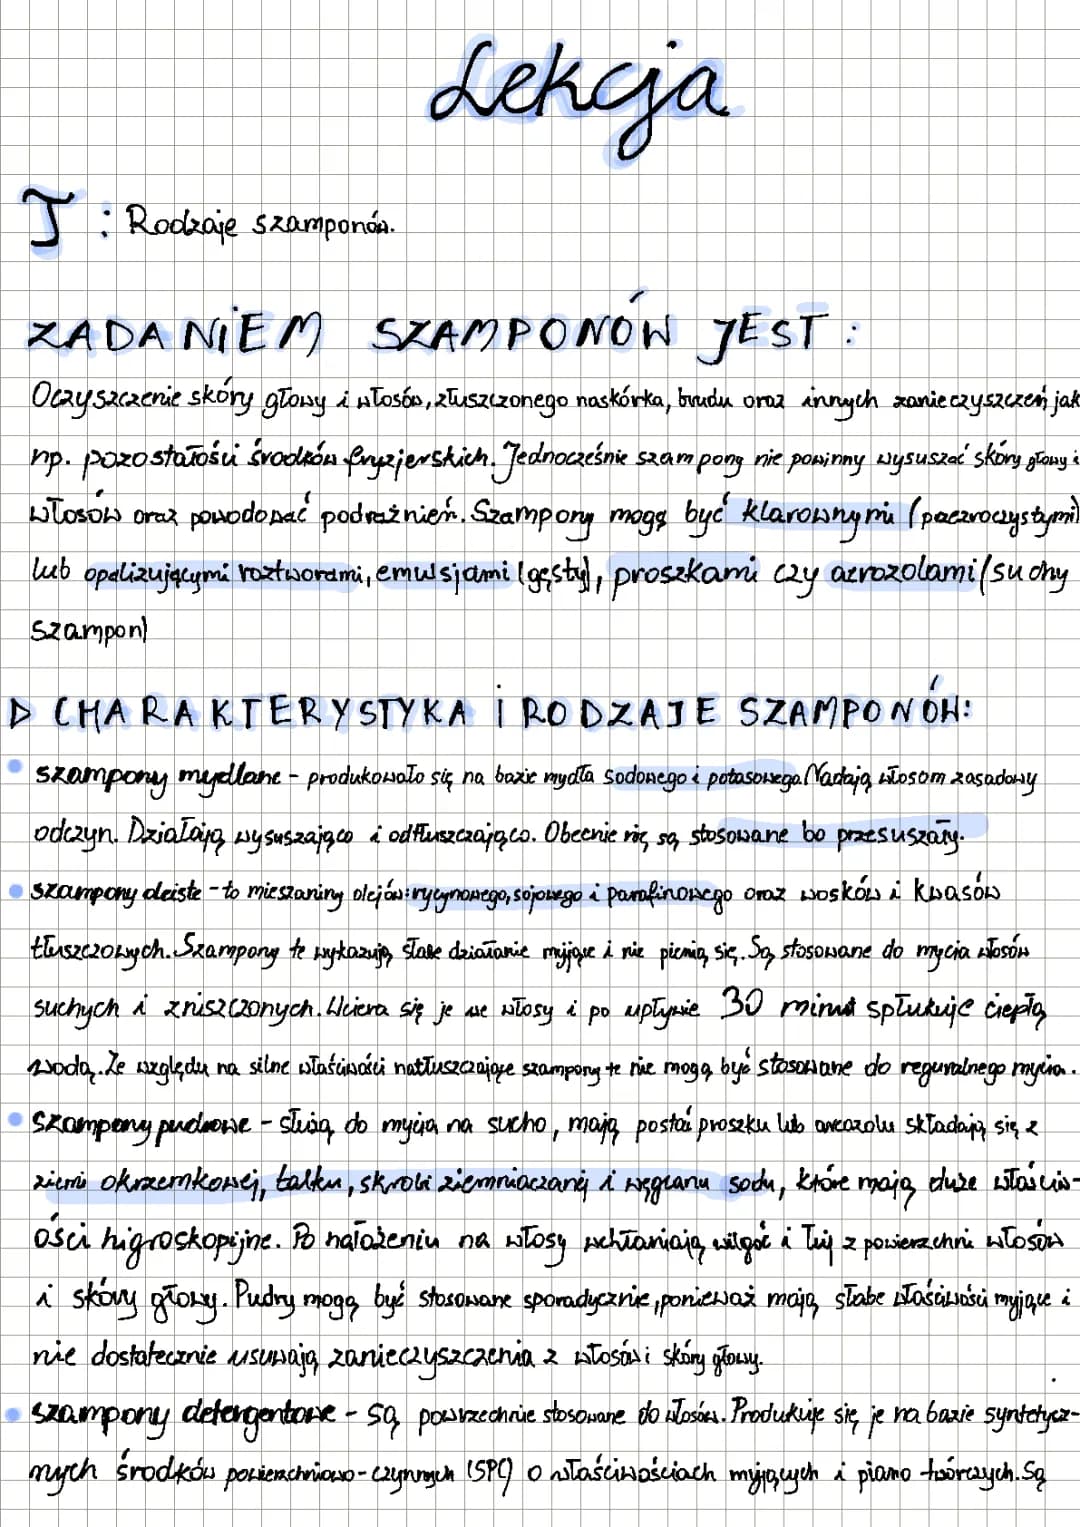 Lekcja
T: Rodzaje szamponów.
ZADANiEM SZAMPONÓW JEST:
Oczyszczenie skóry głowy i włosów, złuszczonego naskórka, brudu oraz innych zanieczyszczeń jak
np. pozostałości środków fryzjerskich. Jednocześnie szampony nie powinny wysuszać skóry głowy i
włosów oraz powodować podrażnień. Szampony mogą być klarownymi (paczroczystymi)
lub opalizującymi roztworami, emulsjami (gęsty), proszkami czy aerozolami (suchy
szampon)
▷ CHARAKTERYSTYKA i RODZAJE SZAMPONÓW:
• szampony mydlane - produkowało się na bazie mydła sodowego i potasowego. Nadają włosom zasadowy
odczyn. Działają wysuszająco i odtłuszczająco. Obecnie nie są stosowane bo przesuszały.
• szampony oleiste - to mieszaniny olejów: rycynowego, sojowego i parafinowego oraz wosków i kwasów
tłuszczowych. Szampony te wykazują słabe działanie myjące i nie pienią się. Są stosowane do mycia włosów
suchych i zniszczonych. Wciera się je we włosy i po upływie 30 minut spłukuje ciepłą
wodą. Ze względu na silne właściwości natłuszczające szampony te nie mogą być stosowane do regularnego mycia.
• szampony pudrowe - służą do mycia na sucho, mają postać proszku lub areozolu składają się z
ziemi okrzemkowej, talku, skrobi ziemniaczanej i węglanu sodu, które mają duże właściw-
ości higroskopijne. Po nałożeniu na włosy wchłaniają wilgoć i łój z powierzchni włosów
i skóry głowy. Pudry mogą być stosowane sporadycznie, ponieważ mają słabe właściwości myjące i
nie dostatecznie usuwają zanieczyszczenia z włosów i skóry głowy.
• szampony detergentowe - są powszechnie stosowane do włosów. Produkuje się je na bazie syntetycz-
nych środków powierzchniowo-czynnych (SPC) o właściwościach myjących i piano twórczych. Są